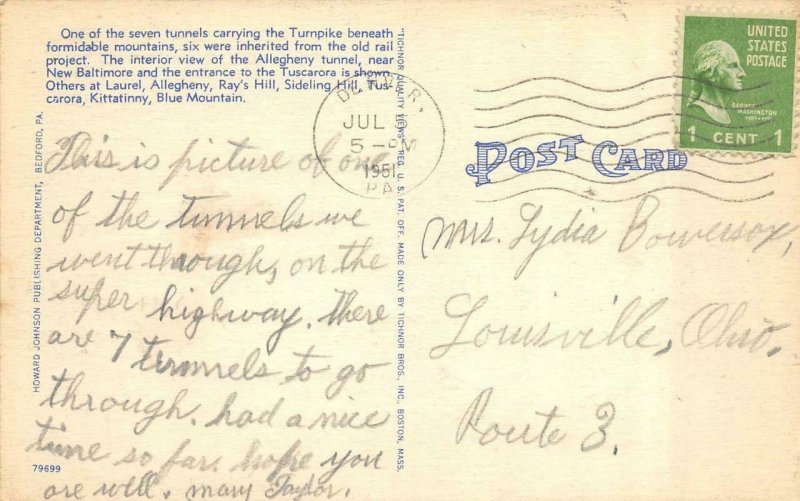 One of the seven tunnels carrying the Turnpike beneath
formidable mountains, six were inherited from the old rail
project. The interior view of the Allegheny tunnel, near
New Baltimore and the entrance to the Tuscarora is shown.
Others at Laurel, Allegheny, Ray's Hill, Sideling Hill, Tus-
carora, Kittatinny, Blue Mountain.
HOWARD JOHNSON PUBLISHING DEPARTMENT, BEDFORD, PA.
This is picture of one
of the tunnels we
went through, on the
super highway. There
are 7 tunnels to go
through. had a nice
time so far. hope you
are well. Mary Taylor.
79699
"TICHNOR QUALITY VIEWS" REG. U. S. PAT. OFF. MADE ONLY BY TICHNOR BROS., INC., BOSTON, MASS.
DENVER,
JUL 5
5 - PM
1951
PA.
UNITED
STATES
POSTAGE
GEORGE
WASHINGTON
1 CENT 1
POST CARD
Mrs. Lydia Bowersox,
Louisville, Ohio.
Route 3.